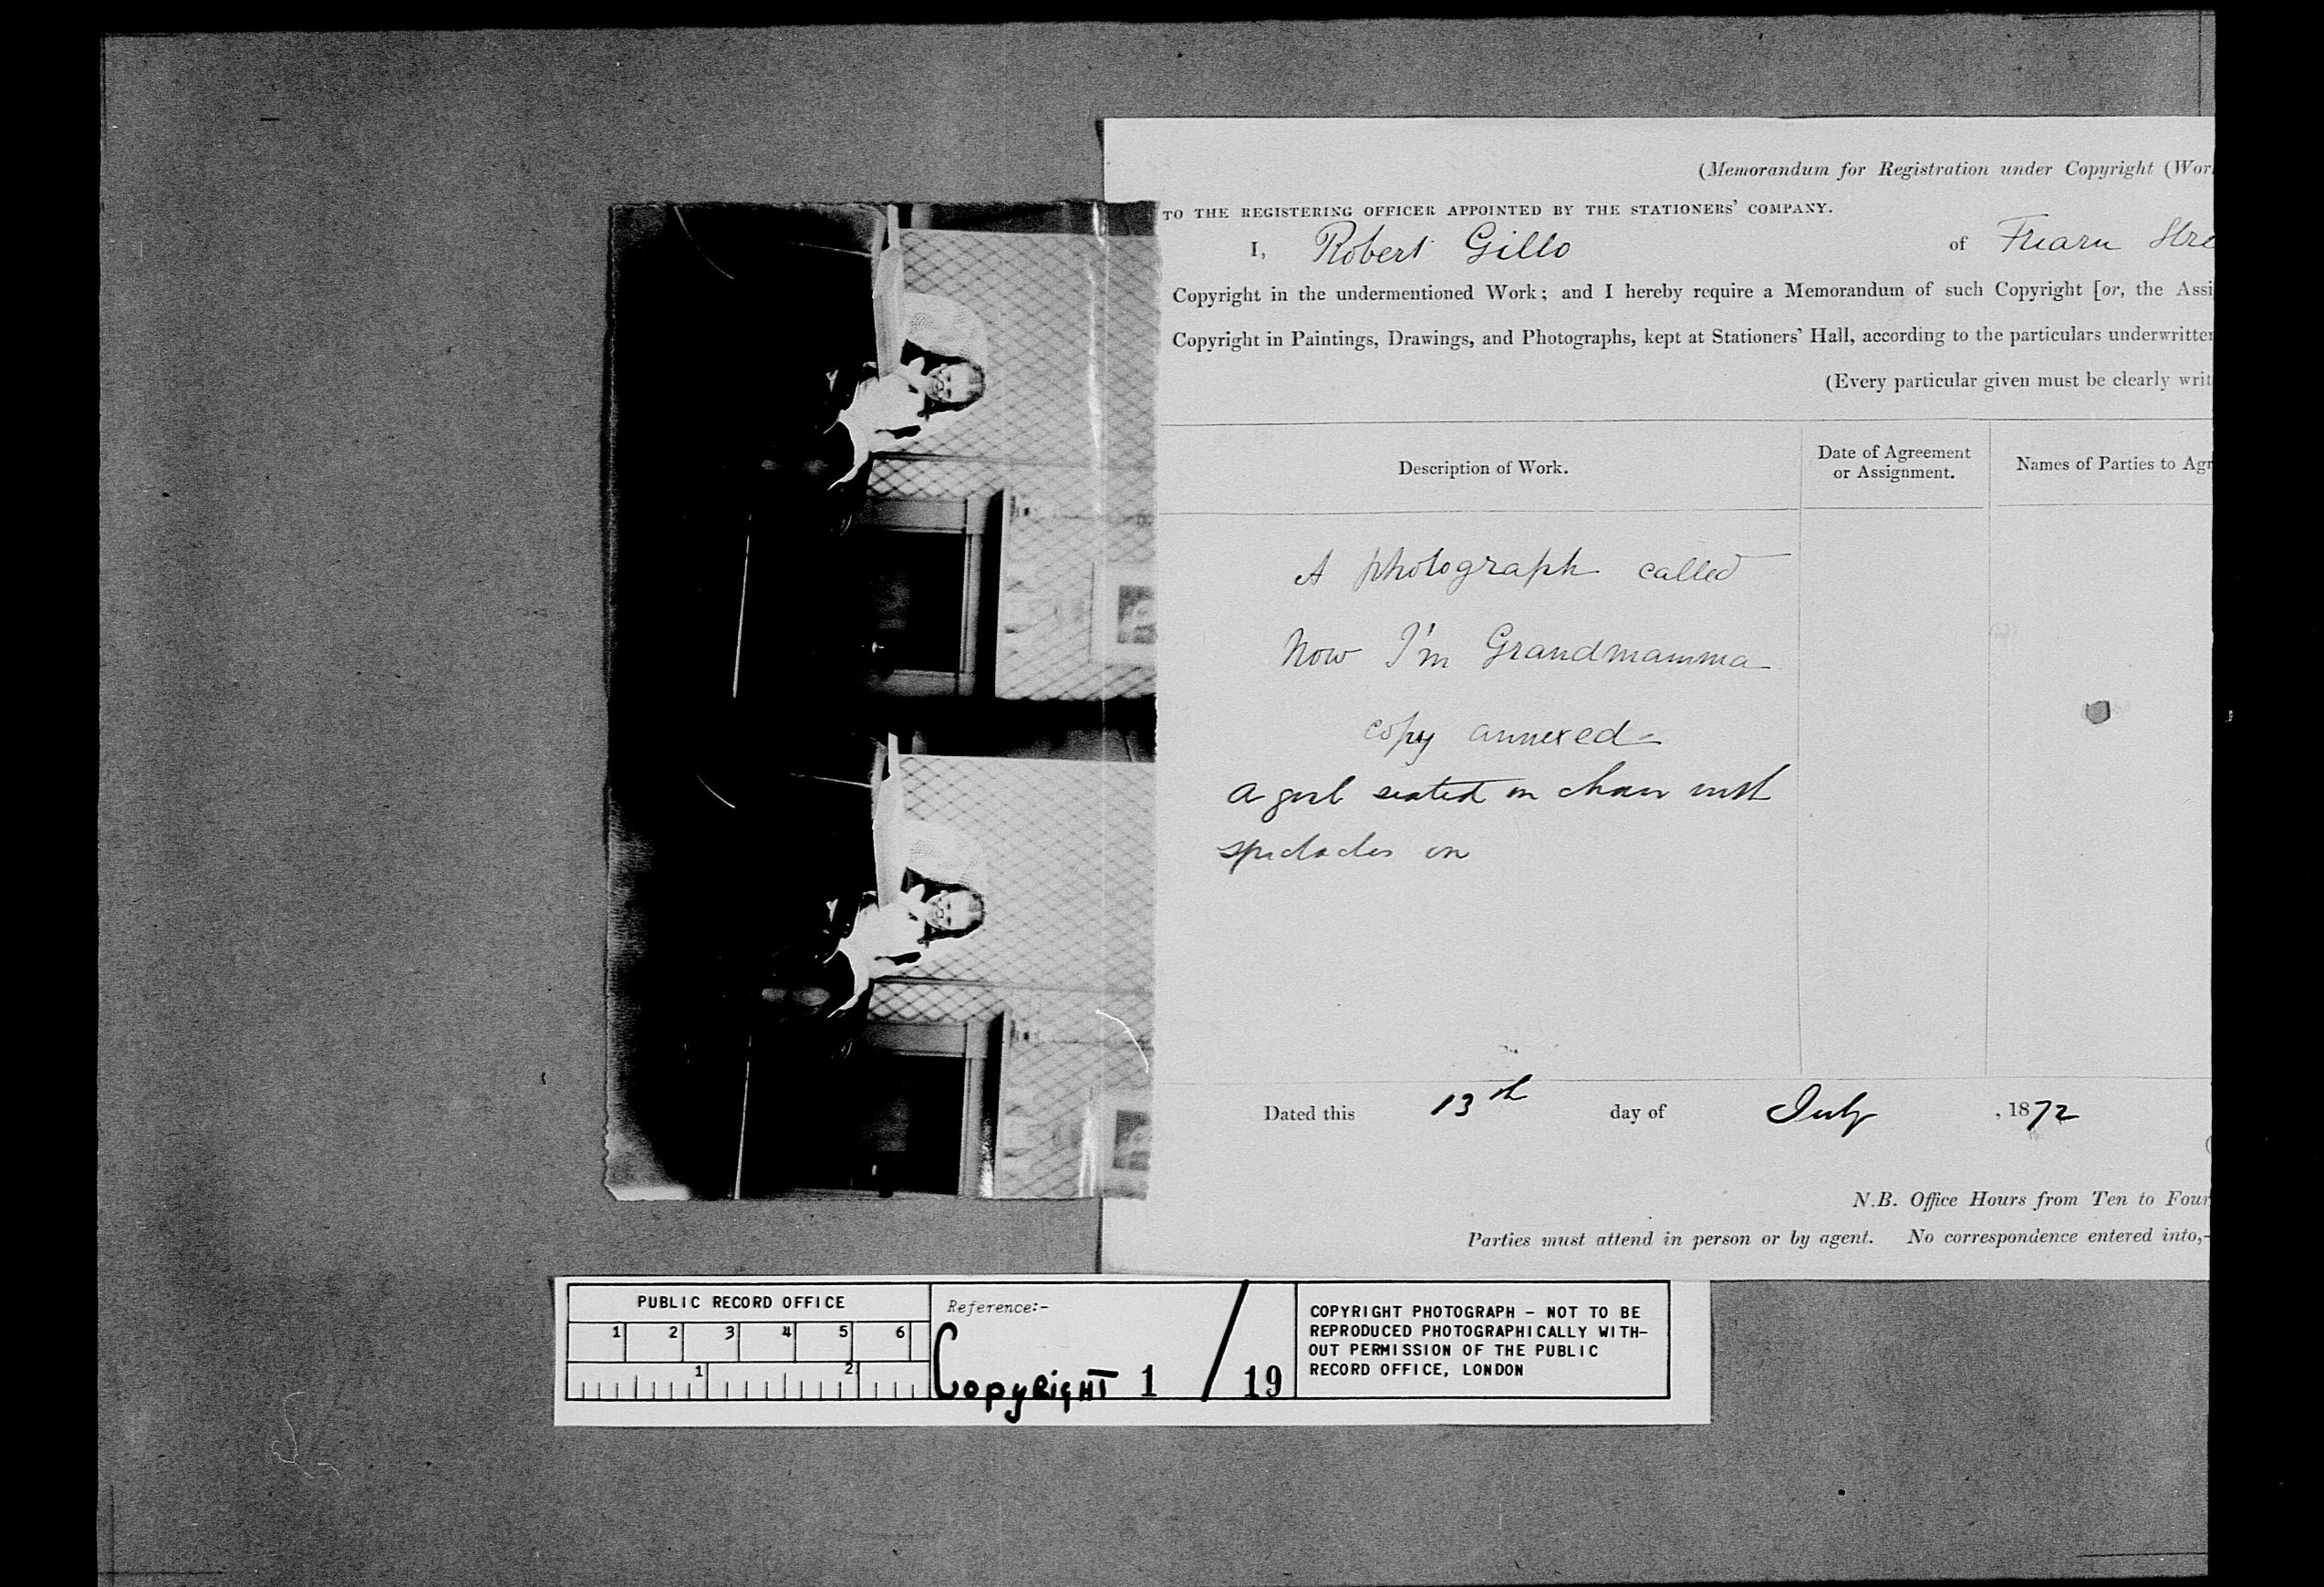 (Memorandum for Registration under Copyright (Wor
TO THE REGISTERING OFFICER APPOINTED BY THE STATIONERS' COMPANY.
I, Robert Gillo of Friarn Stre
Copyright in the undermentioned Work; and I hereby require a Memorandum of such Copyright [or, the Assi
Copyright in Paintings, Drawings, and Photographs, kept at Stationers' Hall, according to the particulars underwritten
(Every particular given must be clearly writ
Description of Work.
Date of Agreement
or Assignment.
Names of Parties to Agr
A photograph called
Now I'm Grandmamma
copy annexed
a girl seated on chair with
spectacles on
Dated this 13th day of July, 1872
N.B. Office Hours from Ten to Four
Parties must attend in person or by agent. No correspondence entered into,-
PUBLIC RECORD OFFICE
1 2 3 4 5 6
1 2
Reference:-
Copyright 1 / 19
COPYRIGHT PHOTOGRAPH - NOT TO BE
REPRODUCED PHOTOGRAPHICALLY WITH-
OUT PERMISSION OF THE PUBLIC
RECORD OFFICE, LONDON